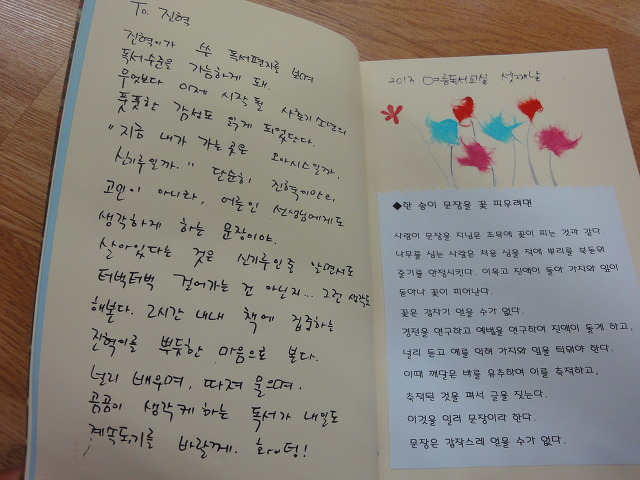 To. 진혁
진혁이가 쓴 독서편지를 보며
독서수준을 가늠하게 돼.
무엇보다 이제 시작될 사춘기 소년의
풋풋한 감성도 읽게 되었단다.
"지금 내가 가는 곳은 오아시스일까.
신기루일까." 단순히 진혁이만의
고민이 아니라, 어른인 선생님에게도
생각하게 하는 문장이야.
살아있다는 것은 신기루인줄 알면서도
터벅터벅 걸어가는 건 아닌지... 그런 생각도
해본다. 2시간 내내 책에 집중하는
진혁이를 뿌듯한 마음으로 본다.
널리 배우며, 따져 물으며.
곰곰이 생각케하는 독서가 내일도
계속되기를 바랄게. 화이팅!
2013. 여름독서교실 셋째날
◆한 송이 문장을 꽃 피우려면
사람이 문장을 지님은 초목에 꽃이 피는 것과 같다.
나무를 심는 사람은 처음 심을 적에 뿌리를 북돋워
줄기를 안정시킨다. 이윽고 진액이 돌아 가지와 잎이
돋아나 꽃이 피어난다.
꽃은 갑자기 얻을 수가 없다.
경전을 연구하고 예법을 연구하여 진액이 돌게 하고,
널리 듣고 예를 익혀 가지와 잎을 틔워야 한다.
이때 깨달은 바를 유추하여 이를 축적하고,
축적된 것을 펴서 글을 짓는다.
이것을 일러 문장이라 한다.
문장은 갑작스레 얻을 수가 없다.